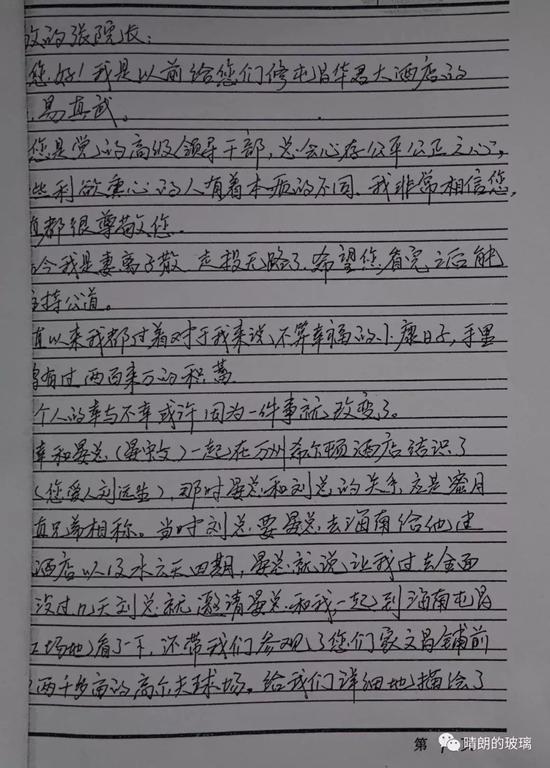 的张院长:
您好!我是以前给您们修屯昌华君大酒店的
易真武。
您是党的高级领导干部,总会心存公平公正之心,
些利欲熏心的人有着本质的不同.我非常相信您,
都很尊敬您.
今我是妻离子散 走投无路了.希望您看完之后能
持公道。
以来我都过着对于我来说,不算幸福的小康日子,手里
有过两百来万的积蓄
个人的幸与不幸或许因为一件事就改变了。
幸和晏总(晏宋文)一起在万州希尔顿酒店结识了
(您爱人刘远生),那时晏总和刘总的关系应是蜜月
兄弟相称。当时刘总要晏总去海南给他建
酒店以及水云天四期,晏总就说让我过去全面
没过几天刘总就邀请晏总和我一起到海南屯昌
场地看了一下,还带我们参观了您们家文昌铺前
两千多亩的高尔夫球场。给我们详细地描绘了
第 1 页
晴朗的玻璃